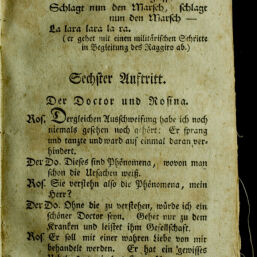 Schlagt nun den Marsch, schlagt
nun den Marsch —
La lara lara la ra.
(er gehet mit einen militärischen Schritte
in Begleitung des Raggiro ab.)
Sechster Auftritt.
Der Doctor und Rosina.
Ros. Dergleichen Ausschweifung habe ich noch
niemals gesehen noch gehört: Er sprang
und tanzte und ward auf einmal daran ver-
hindert.
Der Do. Dieses sind Phénomena, wovon man
schon die Ursachen weiß.
Ros. Sie verstehn also die Phénomena, mein
Herr?
Der Do. Ohne die zu verstehen, würde ich ein
schöner Doctor seyn. Gehet nur zu dem
Kranken und leistet ihm Gesellschaft.
Ros. Er soll mit einer wahren Liebe von mir
behandelt werden. Er hat ein gewisses